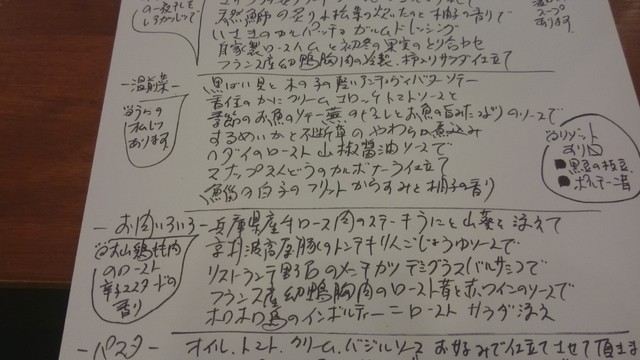 いさきのカルパッチョ ガルムドレッシング
自家製ロースハムと初冬の果実のとり合わせ
フランス産幼鴨胸肉の冷製 柿入りサラダ仕立て
スープ
あります。
－温前菜－
黒ばい貝と木の子の軽いエスカルゴバターソテー
香住のかにクリームコロッケ トマトソースと
季節のお魚のソテー 蕪のすりおろしとお魚の旨みたっぷりのソースで
するめいかと不断草のやわらか煮込み
ヘダイのロースト 山椒醤油ソースで
スナップえんどうのカルボナーラ仕立て
の白子のフリット からすみと柚子の香り
あります
◎リゾット
あり〼
■黒豆の枝豆
■ポルチーニ茸
－お肉いろいろ－
兵庫県産牛ロース肉のステーキ うにと山葵を添えて
京丹波高原豚のトンテキ りんごじょうゆソースで
リストランテ野呂のメンチカツ デミグラスバルサミコで
フランス産幼鴨胸肉のロースト 苺と赤ワインのソースで
ホロホロ鳥のインボルティーニ ロースト サラダ添え
◎大山鶏もも肉
のロースト
辛子マスタードの
香り
－パスタ－
オイル、トマト、クリーム、バジルソース お好みで仕立てさせて頂きま